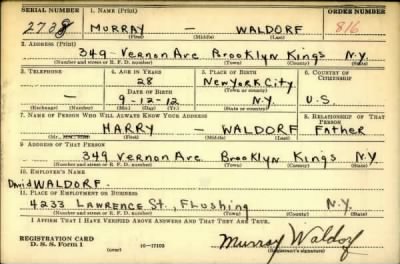 SERIAL NUMBER 1. NAME (Print) ORDER NUMBER
2738 MURRAY — WALDORF 816
(First) (Middle) (Last)
2. ADDRESS (Print)
349 - Vernon Ave Brooklyn Kings N.Y.
(Number and street or R. F. D. number) (Town) (County) (State)
3. TELEPHONE 4. AGE IN YEARS 5. PLACE OF BIRTH 6. COUNTRY OF CITIZENSHIP
28 New York City
DATE OF BIRTH (Town or county)
9-12-12 N.Y. U.S.
(Exchange) (Number) (Mo.) (Day) (Yr.) (State or country)
7. NAME OF PERSON WHO WILL ALWAYS KNOW YOUR ADDRESS 8. RELATIONSHIP OF THAT PERSON
HARRY — WALDORF Father
(First) (Middle) (Last)
9. ADDRESS OF THAT PERSON
349 Vernon Ave Brooklyn Kings N.Y
(Number and street or R. F. D. number) (Town) (County) (State)
10. EMPLOYER'S NAME
David WALDORF.
11. PLACE OF EMPLOYMENT OR BUSINESS
4233 LAWRENCE St., Flushing N.Y.
(Number and street or R. F. D. number) (Town) (County) (State)
I AFFIRM THAT I HAVE VERIFIED ABOVE ANSWERS AND THAT THEY ARE TRUE.
REGISTRATION CARD
D. S. S. Form 1 (over) 16—17105 Murray Waldorf
(Registrant's signature)